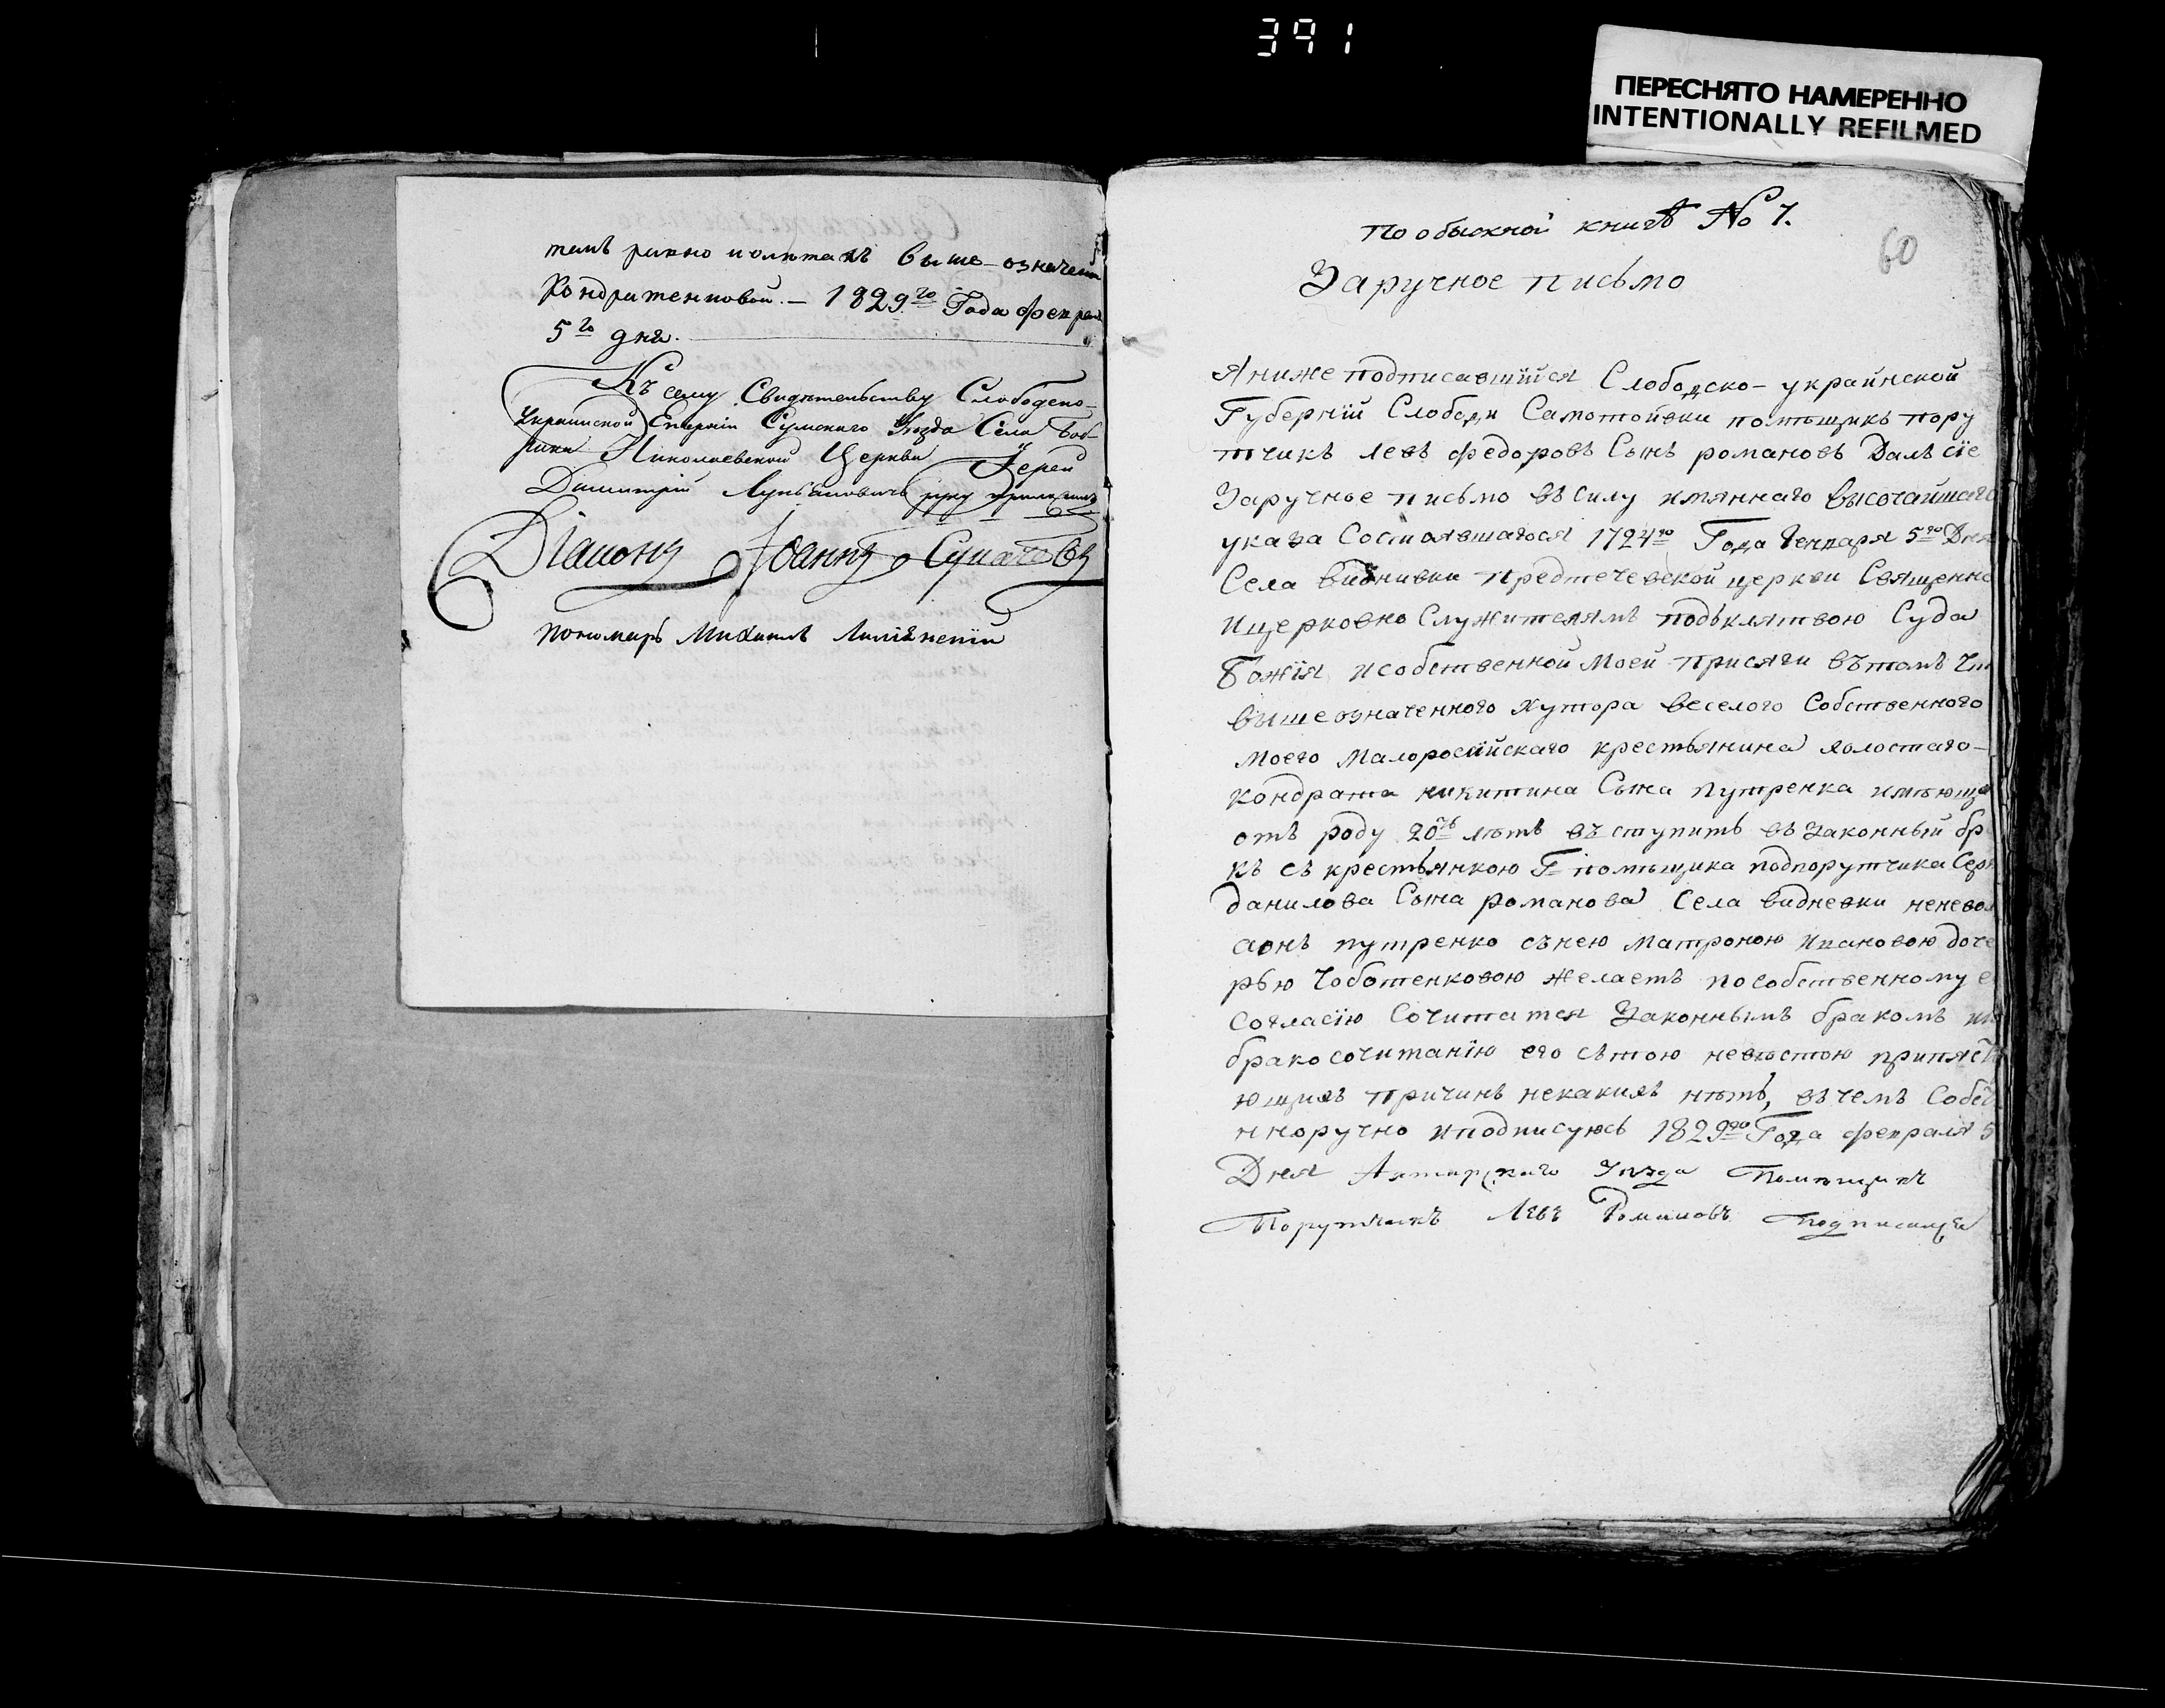 391
ПЕРЕСНЯТО НАМЕРЕННО
INTENTIONALLY REFILMED
тамъ равно и олѣтахъ выше-означен
Кондратенковой. — 1829го Года февра
5го дня.
Къ сему Свидѣтельству Слободско-
Украинской Епархіи Сумскаго Уѣзда Села Боб-
рика Николаевской Церкви Іерей
Димитрій руку приложилъ
Діаконъ Іоаннъ
пономаръ Михаилъ
По обыскной книгѣ № 7.
60
Заручное письмо
Я ниже подписавшійся Слободско-украинской
Губерніи Слободи Самотоевки помѣщикъ пору
тчикъ левъ федоровъ Сынъ романовъ Далъ сіе
Заручное письмо въ силу имяннаго высочайшаго
указа Состоявшагося 1724го Года Генваря 5го Дня
Села видневки предтечевской церкви Священно
ицерковно Служителямъ подъклятвою Суда
Божія исобственной моей присяги въ томъ чт
вышеозначенного хутора веселого Собственного
моего малоросійскаго крестьянина холостаго-
кондрата никитина Сына путренка имѣюща
отъ роду 20ть лѣтъ въступить въ законный бр
къ съ крестьянкою Г помѣщика подпорутчика Сер
данилова Сына романова Села видневки неневол
а онъ путренко съ нею матроною ивановою доче
рью Чоботенковою желаетъ пособственному е
Согласію Сочитатся Законнымъ бракомъ и
бракосочитанію его сътою невѣстою припятст
ющихъ причинъ некакихъ нѣтъ, въ чемъ Собст
нноручно иподписуюсь 1829го Года февраля 5
Дня Ахтирскаго Уѣзда Помѣщикъ
Порутчикъ Левъ Романовъ подписался